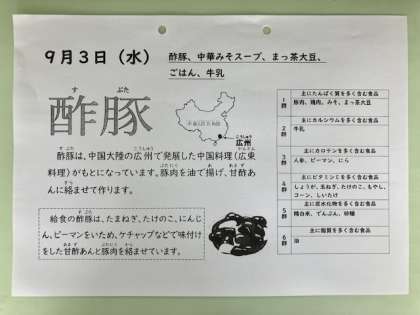 9月3日（水）
酢豚、中華みそスープ、まっ茶大豆、
ごはん、牛乳
す ぶた
酢豚
こうしゅう
広州
す ぶた こうしゅう かんとん
酢豚は、中国大陸の広州で発展した中国料理（広東
ぶたにく あま ず
料理）がもとになっています。豚肉を油で揚げ、甘酢あ
から
んに絡ませて作ります。
す ぶた
給食の酢豚は、たまねぎ、たけのこ、にんじ
ん、ピーマンをいため、ケチャップなどで味付け
あま ず ぶたにく から
をした甘酢あんと豚肉を絡ませています。
主にたんぱく質を多く含む食品
1群
豚肉、鶏肉、みそ、まっ茶大豆
主にカルシウムを多く含む食品
2群
牛乳
主にカロテンを多く含む食品
3群
人参、ピーマン、にら
主にビタミンCを多く含む食品
4群
しょうが、玉ねぎ、たけのこ、もやし、
コーン、しいたけ
主に炭水化物を多く含む食品
5群
精白米、でんぷん、砂糖
主に脂質を多く含む食品
6群
油